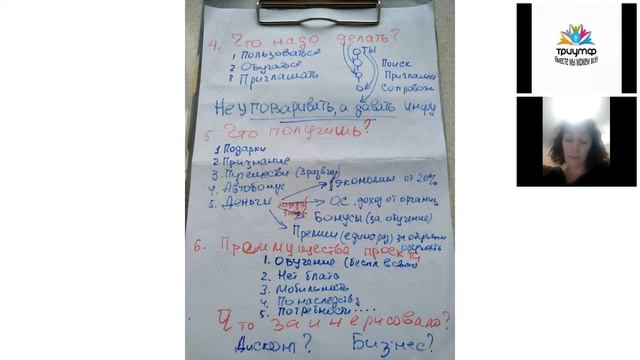 4. Что надо делать?
1 Пользоваться
2 Обучаться
3 Приглашать
ТЫ
Поиск
Приглашен
Сопровож
Не уговаривать, а давать инфу
5 Что получишь?
1 Подарки
2 Признание
3. Путешестви (3 раз в год)
4. Автобонус
5. Деньги
Экономии от 20%
О.С. доход от организ
Бонусы (за обучение)
Премии (единораз) за открыти
6. Преимущества проекта
1. Обучение (беспл
2. Нет блата
3. Мобильность
4. По наследств
5. Потребности....
Что заинтерисовало?
Дисконт? Бизнес?
триумф
ВМЕСТЕ МЫ МОЖЕМ ВСЁ!